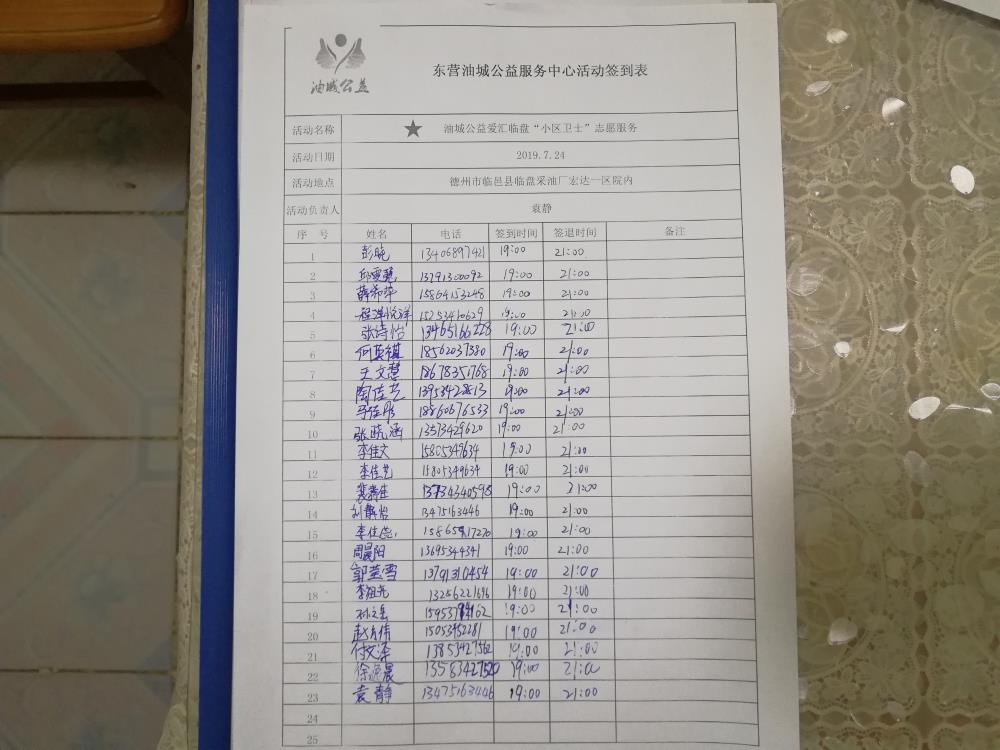 油城公益
东营油城公益服务中心活动签到表
活动名称 ★ 油城公益爱汇临盘“小区卫士”志愿服务
活动日期 2019.7.24
活动地点 德州市临邑县临盘采油厂宏达一区院内
活动负责人 袁静
序号 姓名 电话 签到时间 签退时间 备注
1 彭晓 13406897421 19:00 21:00
2 13791300092 19:00 21:00
3 薛希萍 15864153248 19:00 21:00
4 15253410629 19:00 21:00
5 张诗怡 13465166278 19:00 21:00
6 何英祺 18562037380 19:00 21:00
7 王文慧 18678351768 19:00 21:00
8 陶佳艺 13953428813 19:00 21:00
9 18860676533 19:00 21:00
10 张晓涵 13573429620 19:00 21:00
11 李佳文 15805349634 19:00 21:00
12 李佳艺 15805349634 19:00 21:00
13 13734340598 19:00 21:00
14 刘静怡 13475163446 19:00 21:00
15 19:00 21:00
16 周晨阳 13695344341 19:00 21:00
17 郭莹雪 13791310454 19:00 21:00
18 李祖光 13256221696 19:00 21:00
19 19:00 21:00
20 15053452281 19:00 21:00
21 付文泽 13853427562 19:00 21:00
22 徐逸晨 19:00 21:00
23 袁静 13475163446 19:00 21:00
24
25